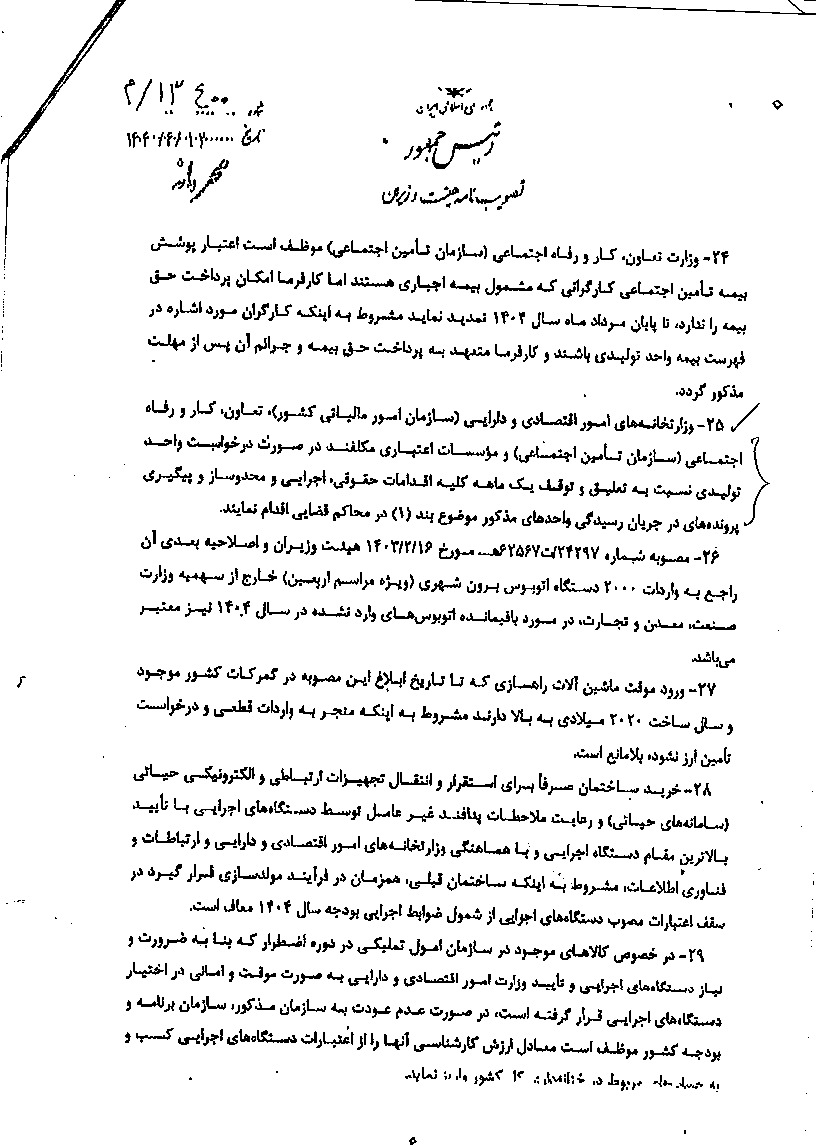 جمهوری اسلامی ایران
رئیس جمهور
تصویب‌نامه هیئت وزیران
شماره
تاریخ
۲۴- وزارت تعاون، کار و رفاه اجتماعی (سازمان تأمین اجتماعی) موظف است اعتبار پوشش
بیمه تأمین اجتماعی کارگرانی که مشمول بیمه اجباری هستند اما کارفرما امکان پرداخت حق
بیمه را ندارد، تا پایان مرداد ماه سال ۱۴۰۴ تمدید نماید مشروط به اینکه کارگران مورد اشاره در
فهرست بیمه واحد تولیدی باشند و کارفرما متعهد به پرداخت حق بیمه و جرائم آن پس از مهلت
مذکور گردد.
۲۵- وزارتخانه‌های امور اقتصادی و دارایی (سازمان امور مالیاتی کشور)، تعاون، کار و رفاه
اجتماعی (سازمان تأمین اجتماعی) و مؤسسات اعتباری مکلفند در صورت درخواست واحد
تولیدی نسبت به تعلیق و توقف یک ماهه کلیه اقدامات حقوقی، اجرایی و محدودساز و پیگیری
پرونده‌های در جریان رسیدگی واحدهای مذکور موضوع بند (۱) در محاکم قضایی اقدام نمایند.
۲۶- مصوبه شماره ۲۴۲۹۷/ت۶۲۵۶۷هـ مورخ ۱۴۰۳/۲/۱۶ هیئت وزیران و اصلاحیه بعدی آن
راجع به واردات ۲۰۰۰ دستگاه اتوبوس برون شهری (ویژه مراسم اربعین) خارج از سهمیه وزارت
صنعت، معدن و تجارت، در مورد باقیمانده اتوبوس‌های وارد نشده در سال ۱۴۰۴ نیز معتبر
می‌باشد.
۲۷- ورود موقت ماشین آلات راهسازی که تا تاریخ ابلاغ این مصوبه در گمرکات کشور موجود
و سال ساخت ۲۰۲۰ میلادی به بالا دارند مشروط به اینکه منجر به واردات قطعی و درخواست
تأمین ارز نشود، بلامانع است.
۲۸- خرید ساختمان صرفاً برای استقرار و انتقال تجهیزات ارتباطی و الکترونیکی حیاتی
(سامانه‌های حیاتی) و رعایت ملاحظات پدافند غیر عامل توسط دستگاه‌های اجرایی با تأیید
بالاترین مقام دستگاه اجرایی و با هماهنگی وزارتخانه‌های امور اقتصادی و دارایی و ارتباطات و
فناوری اطلاعات، مشروط به اینکه ساختمان قبلی، همزمان در فرآیند مولدسازی قرار گیرد در
سقف اعتبارات مصوب دستگاه‌های اجرایی از شمول ضوابط اجرایی بودجه سال ۱۴۰۴ معاف است.
۲۹- در خصوص کالاهای موجود در سازمان اموال تملیکی در دوره اضطرار که بنا به ضرورت و
نیاز دستگاه‌های اجرایی و تأیید وزارت امور اقتصادی و دارایی به صورت موقت و امانی در اختیار
دستگاه‌های اجرایی قرار گرفته است، در صورت عدم عودت به سازمان مذکور، سازمان برنامه و
بودجه کشور موظف است معادل ارزش کارشناسی آنها را از اعتبارات دستگاه‌های اجرایی کسب و
به مربوط کشور واریز نماید.